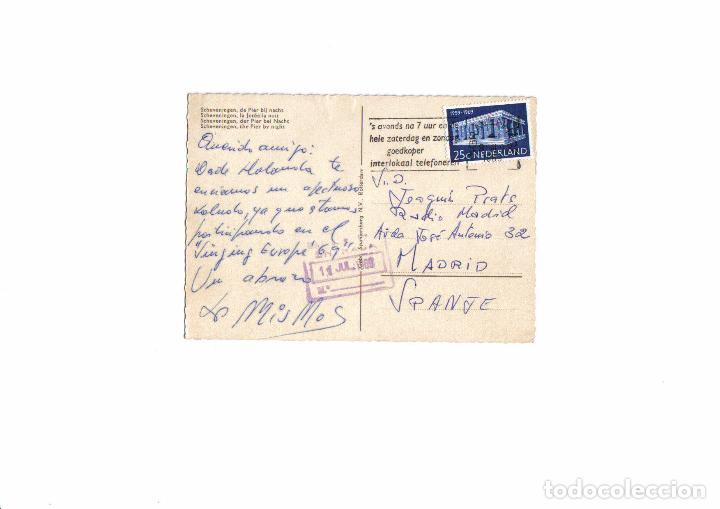 Scheveningen, de Pier bij nacht
Scheveningen, la Jetée la nuit
Scheveningen, der Pier bei Nacht
Scheveningen, the Pier by night
Querido amigo:
Desde Holanda te
enviamos un afectuoso
saludo, ya que estamos
participando en el
"Singing Europe" 69
Un abrazo
Los MisMos
's avonds na 7 uur en
hele zaterdag en zondag
goedkoper
interlokaal telefoneren
1959 - 1969
25c NEDERLAND
S.D.
Joaquín Prats
Radio Madrid
Avda José Antonio 32
MADRID
SPANJE
11 JUL. 1969
N.º
todocoleccion